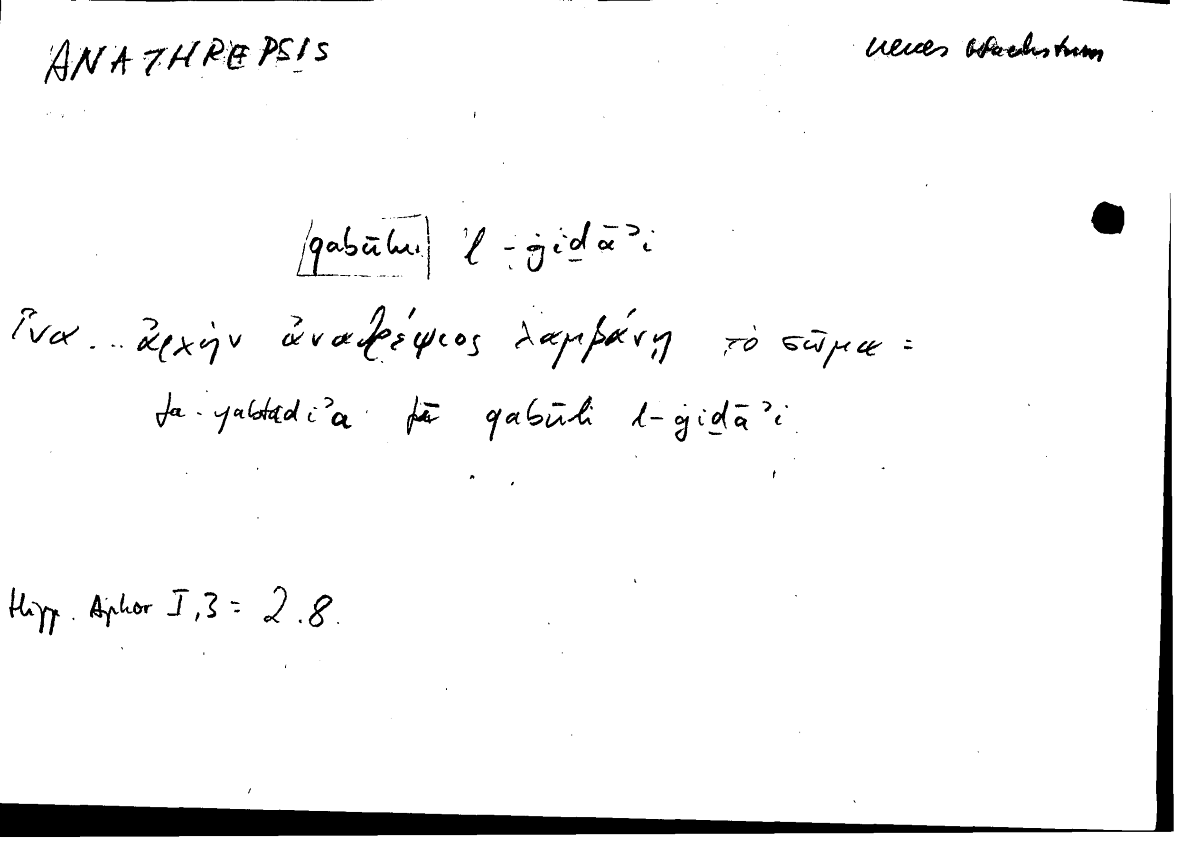 ANATHREPSIS neues Wachstum
qabūlu l-ġiḏāʾi
ἵνα ... ἀρχὴν ἀναθρέψιος λαμβάνῃ τὸ σῶμα =
fa-yabtadiʾa fī qabūli l-ġiḏāʾi
Hipp. Aphor I,3 = 2.8.